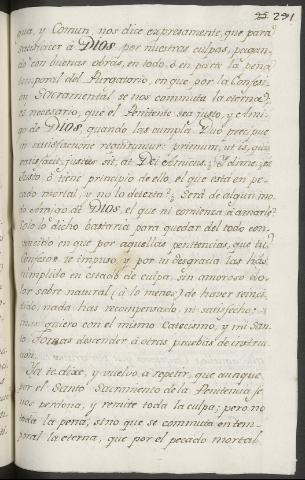 291
gua, y Comun, nos dice expresamente, que para
satisfacer à DIOS por nuestras culpas, pagan-
do con buenas obras, en todo, ò en parte la pena
temporal del Purgatorio, en que por la Confesi-
on Sacramental se nos commuta la eterna;
es necesario, que el Penitente sea justo, y Ami-
go de DIOS, quando las cumpla. Duo precipue
in satisfactione requiruntur: primum, ut is, qui
satisfacit, justus sit, ac Dei Amicus. Y dime, es
Justo, ò tiene principio de ello, el que está en pe-
cado mortal, y no lo detesta? Será de algun mo-
do Amigo de DIOS, el que ni comienza à amarle?
Solo lo dicho bastaria para quedar del todo con-
vencido en que por aquellas penitencias, que tu
Confesor te impuso, y por tu desgracia las has
cumplido en estado de culpa, sin amoroso do-
lor sobre natural (à lo menos) de haver reinci-
dido, nada has recompensado, ni satisfecho;
mas quiero con el mismo Catecismo, y mi San-
to Thomas descender à otras pruebas de instruc-
cion.
Ya te dixe, y vuelvo à repetir, que aunque
por el Santo Sacramento de la Penitencia se
nos perdona, y remite toda la culpa; pero no
toda la pena, sino que se commuta en tem-
poral la eterna, que por el pecado mortal